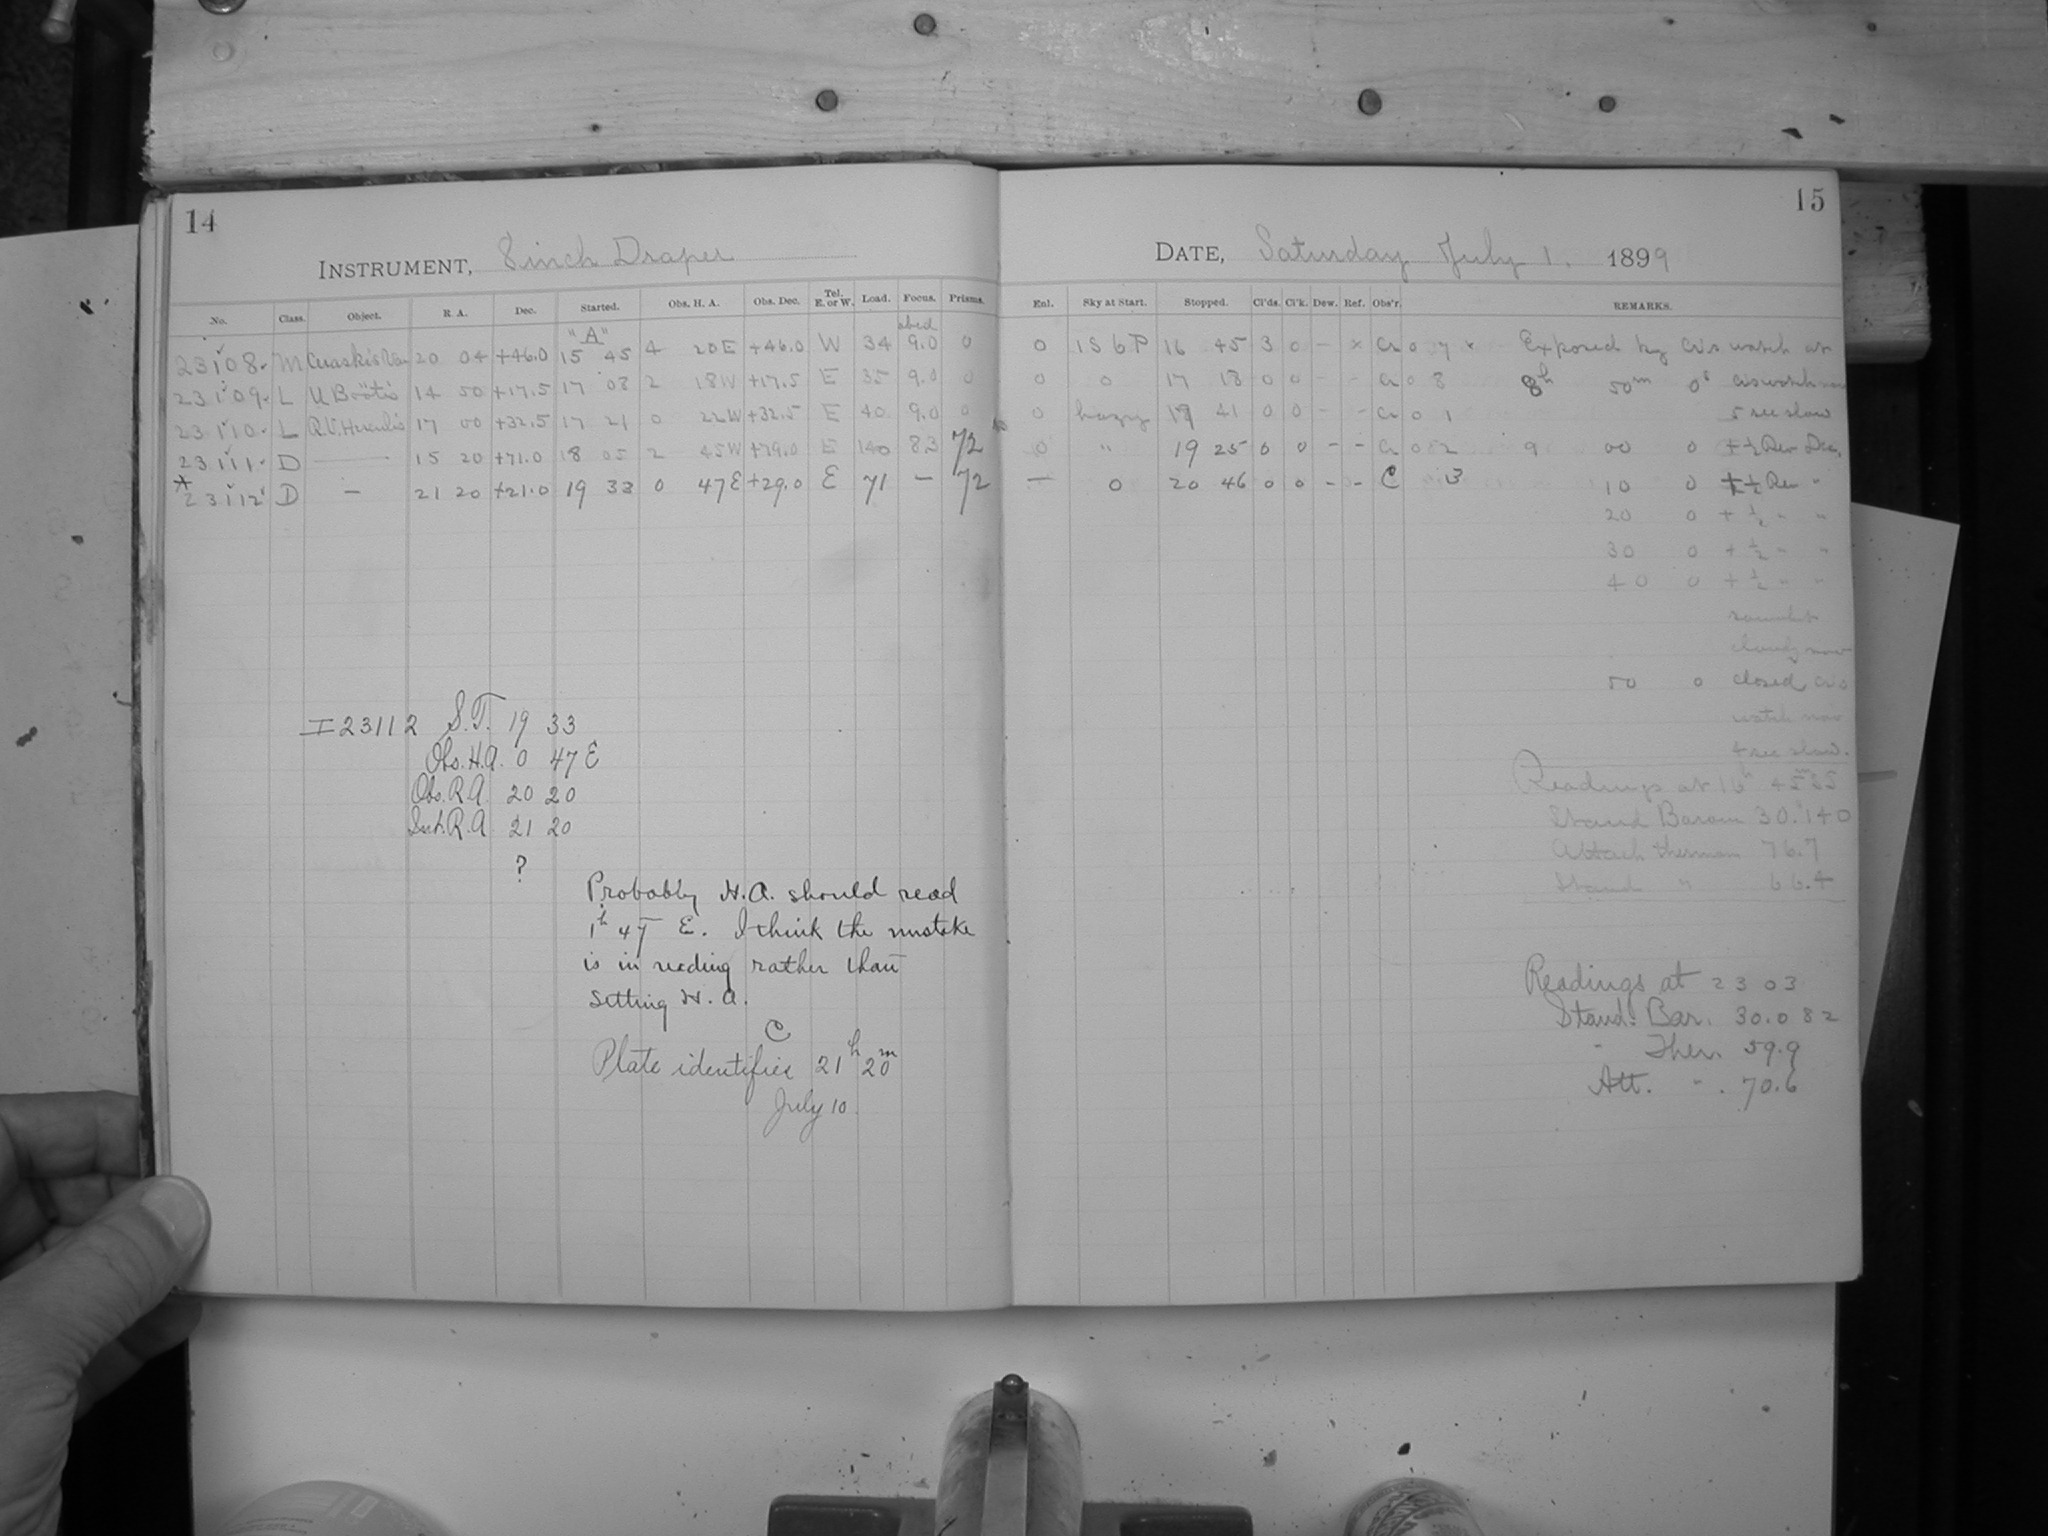 14
INSTRUMENT, 8 inch Draper
No. Class. Object. R. A. Dec. Started. Obs. H. A. Obs. Dec. Tel. E. or W. Load. Focus. Prisms.
"A"
23108 M 20 04 +46.0 15 45 4 20 E +46.0 W 34 9.0 0
23109 L U Boötis 14 50 +17.5 17 08 2 18 W +17.5 E 35 9.0 0
23110 L 17 00 +32.5 17 21 0 22 W +32.5 E 40 9.0 0
23111 D — 15 20 +71.0 18 05 2 45 W +79.0 E 140 8.3 72
23112 D — 21 20 +21.0 19 33 0 47 E +29.0 E 71 — 72
I 23112 S.T. 19 33
Obs. H.A. 0 47 E
Obs. R.A. 20 20
R.A 21 20
?
Probably H.A. should read
1h 47 E. I think the mistake
is in reading rather than
setting H.A.
C
Plate identifies 21h 20m
July 10
15
DATE, Saturday July 1. 1899
Enl. Sky at Start. Stopped. Cl'ds. Cl'k. Dew. Ref. Obs'r. REMARKS.
0 1 S 6 P 16 45 3 0 - x 0 7 Exposed by watch at
0 0 17 18 0 0 - - 0 8 8h 50m 0s watch now
0 hazy 17 41 0 0 - - 0 1 5 sec slow
0 " 19 25 0 0 - - 0 2 9 00 0 +½ Rev Dec.
— 0 20 46 0 0 - - C 3 10 0 +½ Rev "
20 0 + ½ " "
30 0 + ½ " "
40 0 + ½ " "
cloudy now
50 0 closed
watch now
4 sec slow.
Readings at 16h 45m 35
Stand Barom 30.140
Attach thermom 76.7
Stand " 66.4
Readings at 23 03
Stand. Bar. 30.082
" Ther. 59.9
Att. " 70.6